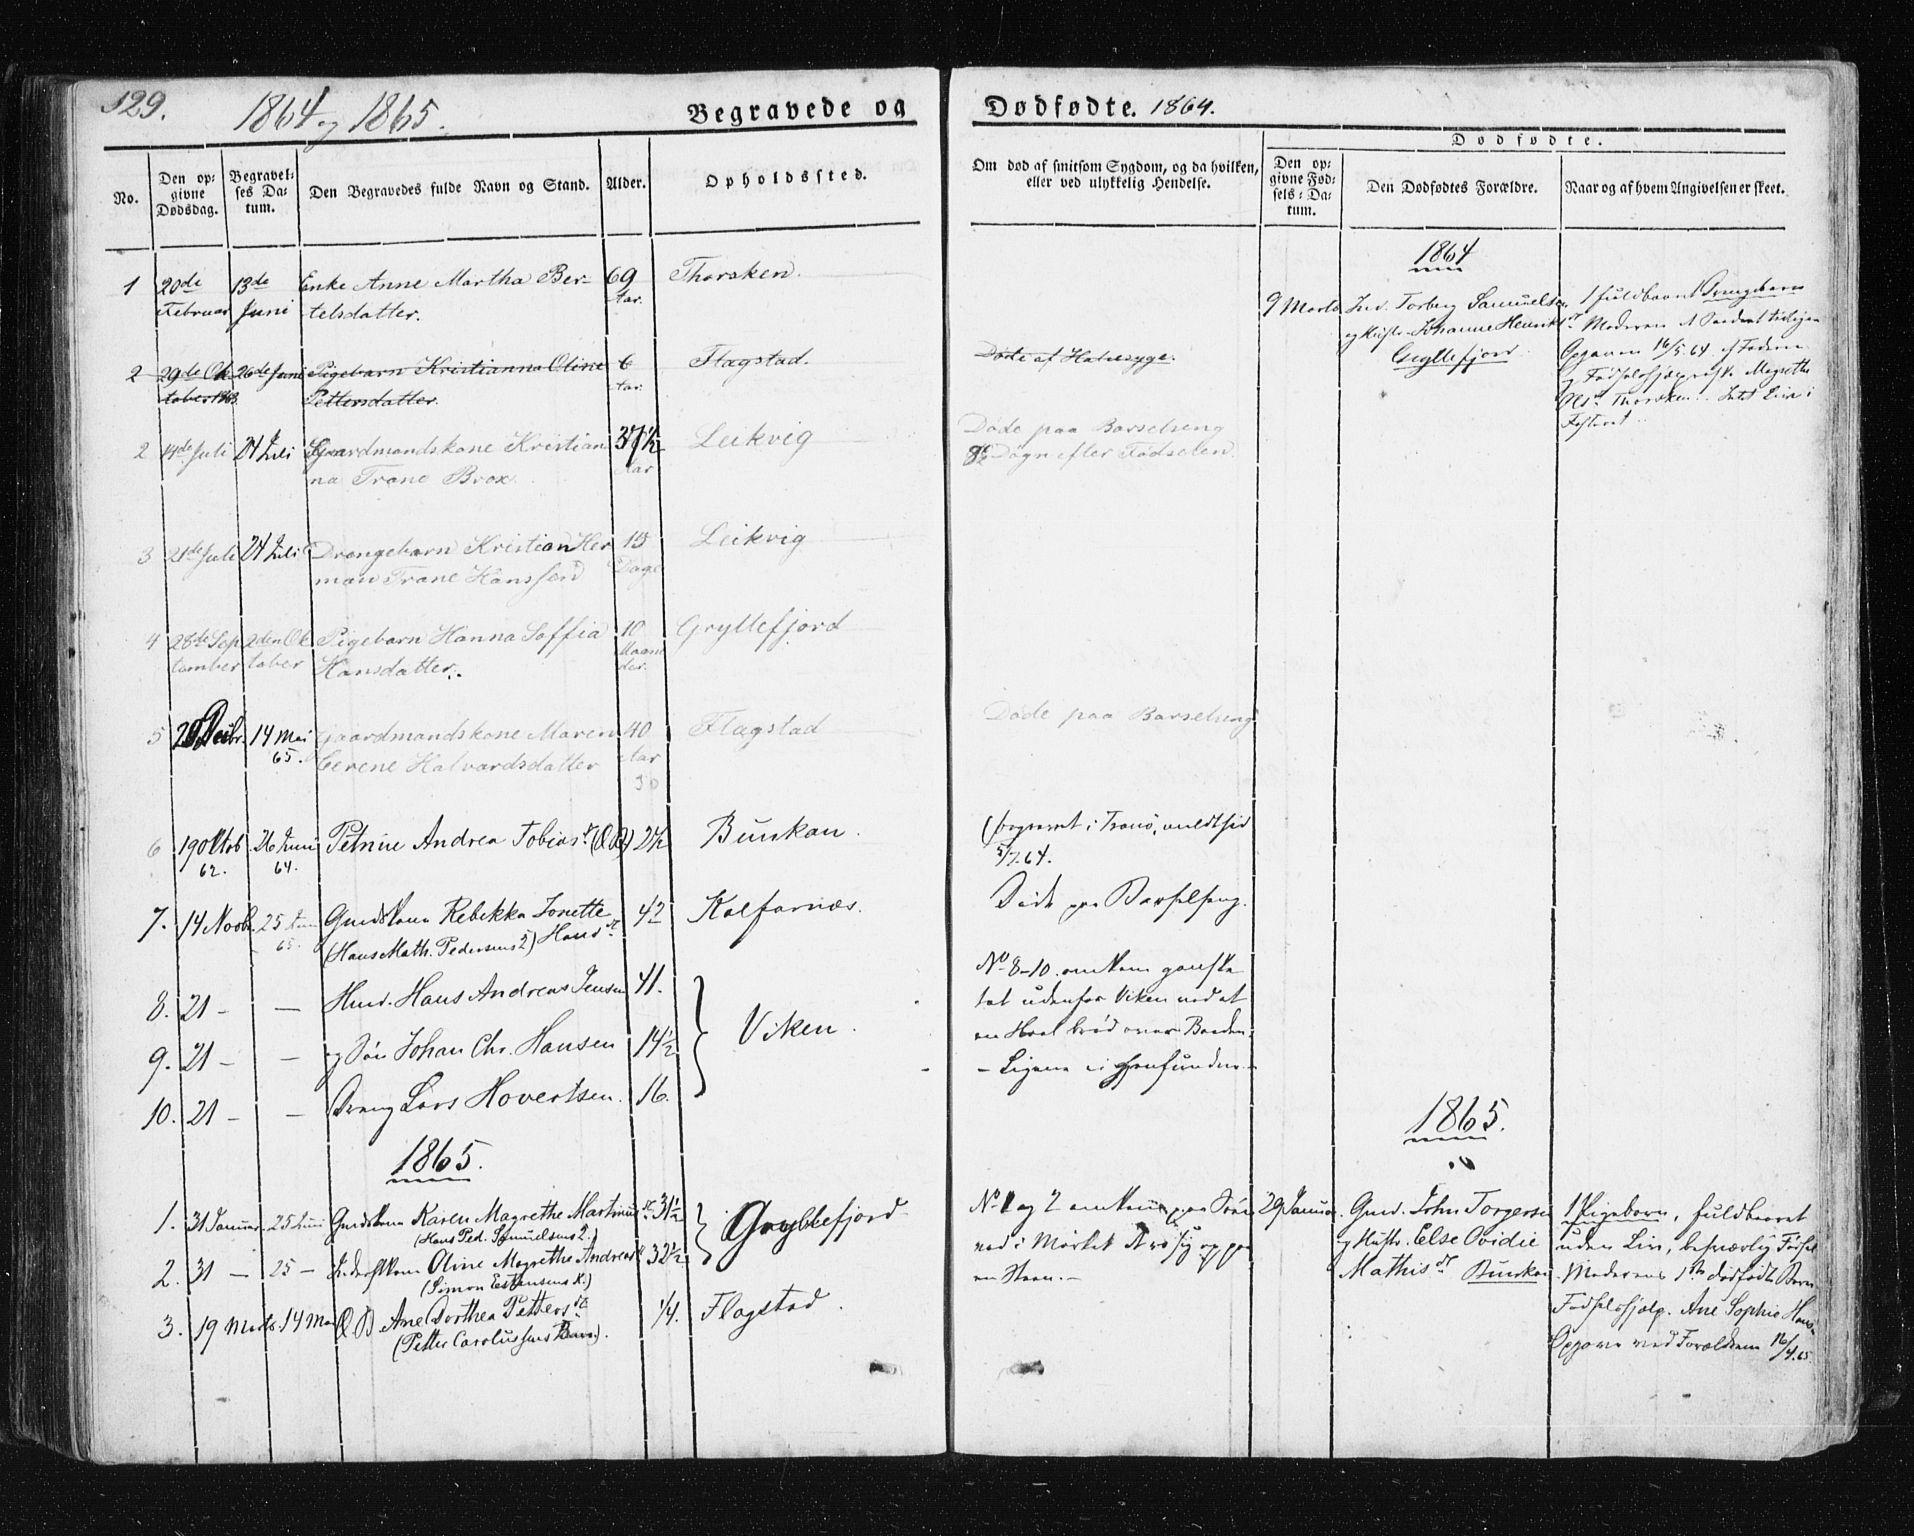 129.
1864 og 1865.
Begravede og
Dødfødte. 1864.
No.
Den opgivne Dødsdag.
Begravelses Datum.
Den Begravedes fulde Navn og Stand.
Alder.
Opholdssted.
Om død af smitsom Sygdom, og da hvilken, eller ved ulykkelig Hendelse.
Dødfødte.
Den opgivne Fødsels-Datum.
Den Dødfødtes Forældre.
Naar og af hvem Angivelsen er skeet.
1 20de 13de Enke Anne Martha Ber- 69 Thorsken.
Februar Juni telsdatter. Aar.
2 29de Ok 26de Juni Pigebarn Kristianna Oline 6 Flagstad. Døde af Halssyge.
tober 1863 Pettersdatter. Aar.
2 14de Juli 24 Juli Gaardmandskone Kristian 37½ Leikvig Døde paa Barselseng
na Trane Brox Aar 8 Døgn efter Fødselen.
3 21de Juli 24 Juli Drengebarn Kristian Her 15 Leikvig
man Trane Hanssen Dage
4 28de Sep 2den Ok Pigebarn Hanna Soffia 10 Gryllefjord
tember tober Hansdatter. Maane
der.
5 14 Mai Gaardmandskone Maren 40 Flagstad Døde paa Barselseng
65. Cerene Halvardsdatter Aar
6 19 Oktob 26 Juni Petrine Andrea Tobias dr 2½ Bunkan.
62. 64. 5/7.64.
7. 14 Novbr 25 Juni Gmdskone Rebekka Jonette 42 Kalfarnæs. Døde paa Barselseng.
65. (Hans Math. Pedersens) Hansdr
8. 21 – – Hmd. Hans Andreas Jensen 41. No 8–10. omkom ganske
tæt udenfor Viken ved at
9. 21 – – og Søn Johan Chr. Hansen 14½ Viken. en Hval brød over Baaden.
– Ligene ei gjenfundne. –
10. 21 – – Dreng Lars Hovertsen. 16.
1865.
1. 31 Januar 25 Juni Gmdskone Karen Magrethe Martinus dr 31½ Gryllefjord. No 1 og 2 omkom paa Søen
(Hans Ped. Samuelsens) ved i Mørket at
2. 31 – 25 – Oline Magrethe Andreas 32½ en Steen. –
(Simon Estensens K.)
3. 19 Marts 14 Mai Ane Dorthea Petters dr 1/4. Flagstad.
(Petter Carolussens Barn).
1864
9 Marts Ind. Torberg Samuelsen 1 fuldbaaret Drengebarn
og Hustr. Johanne Henriksdr Moderen
Gryllefjord Opgaven 16/5.64 af Faderen
og Magrethe
Olsdr Thorsken. Intet Liv i
Fosteret.
1865.
29 Januar Gmd. John Torgersen 1 Pigebarn, fuldbaaret
og Hustr. Else Ovidie uden Liv, besværlig Fødsel
Mathis dr Bunkan Moderens 1ste dødfødte Barn
Fødselshjælp. Ane Sophie Hans
Opgave ved Forældrene 16/4.65